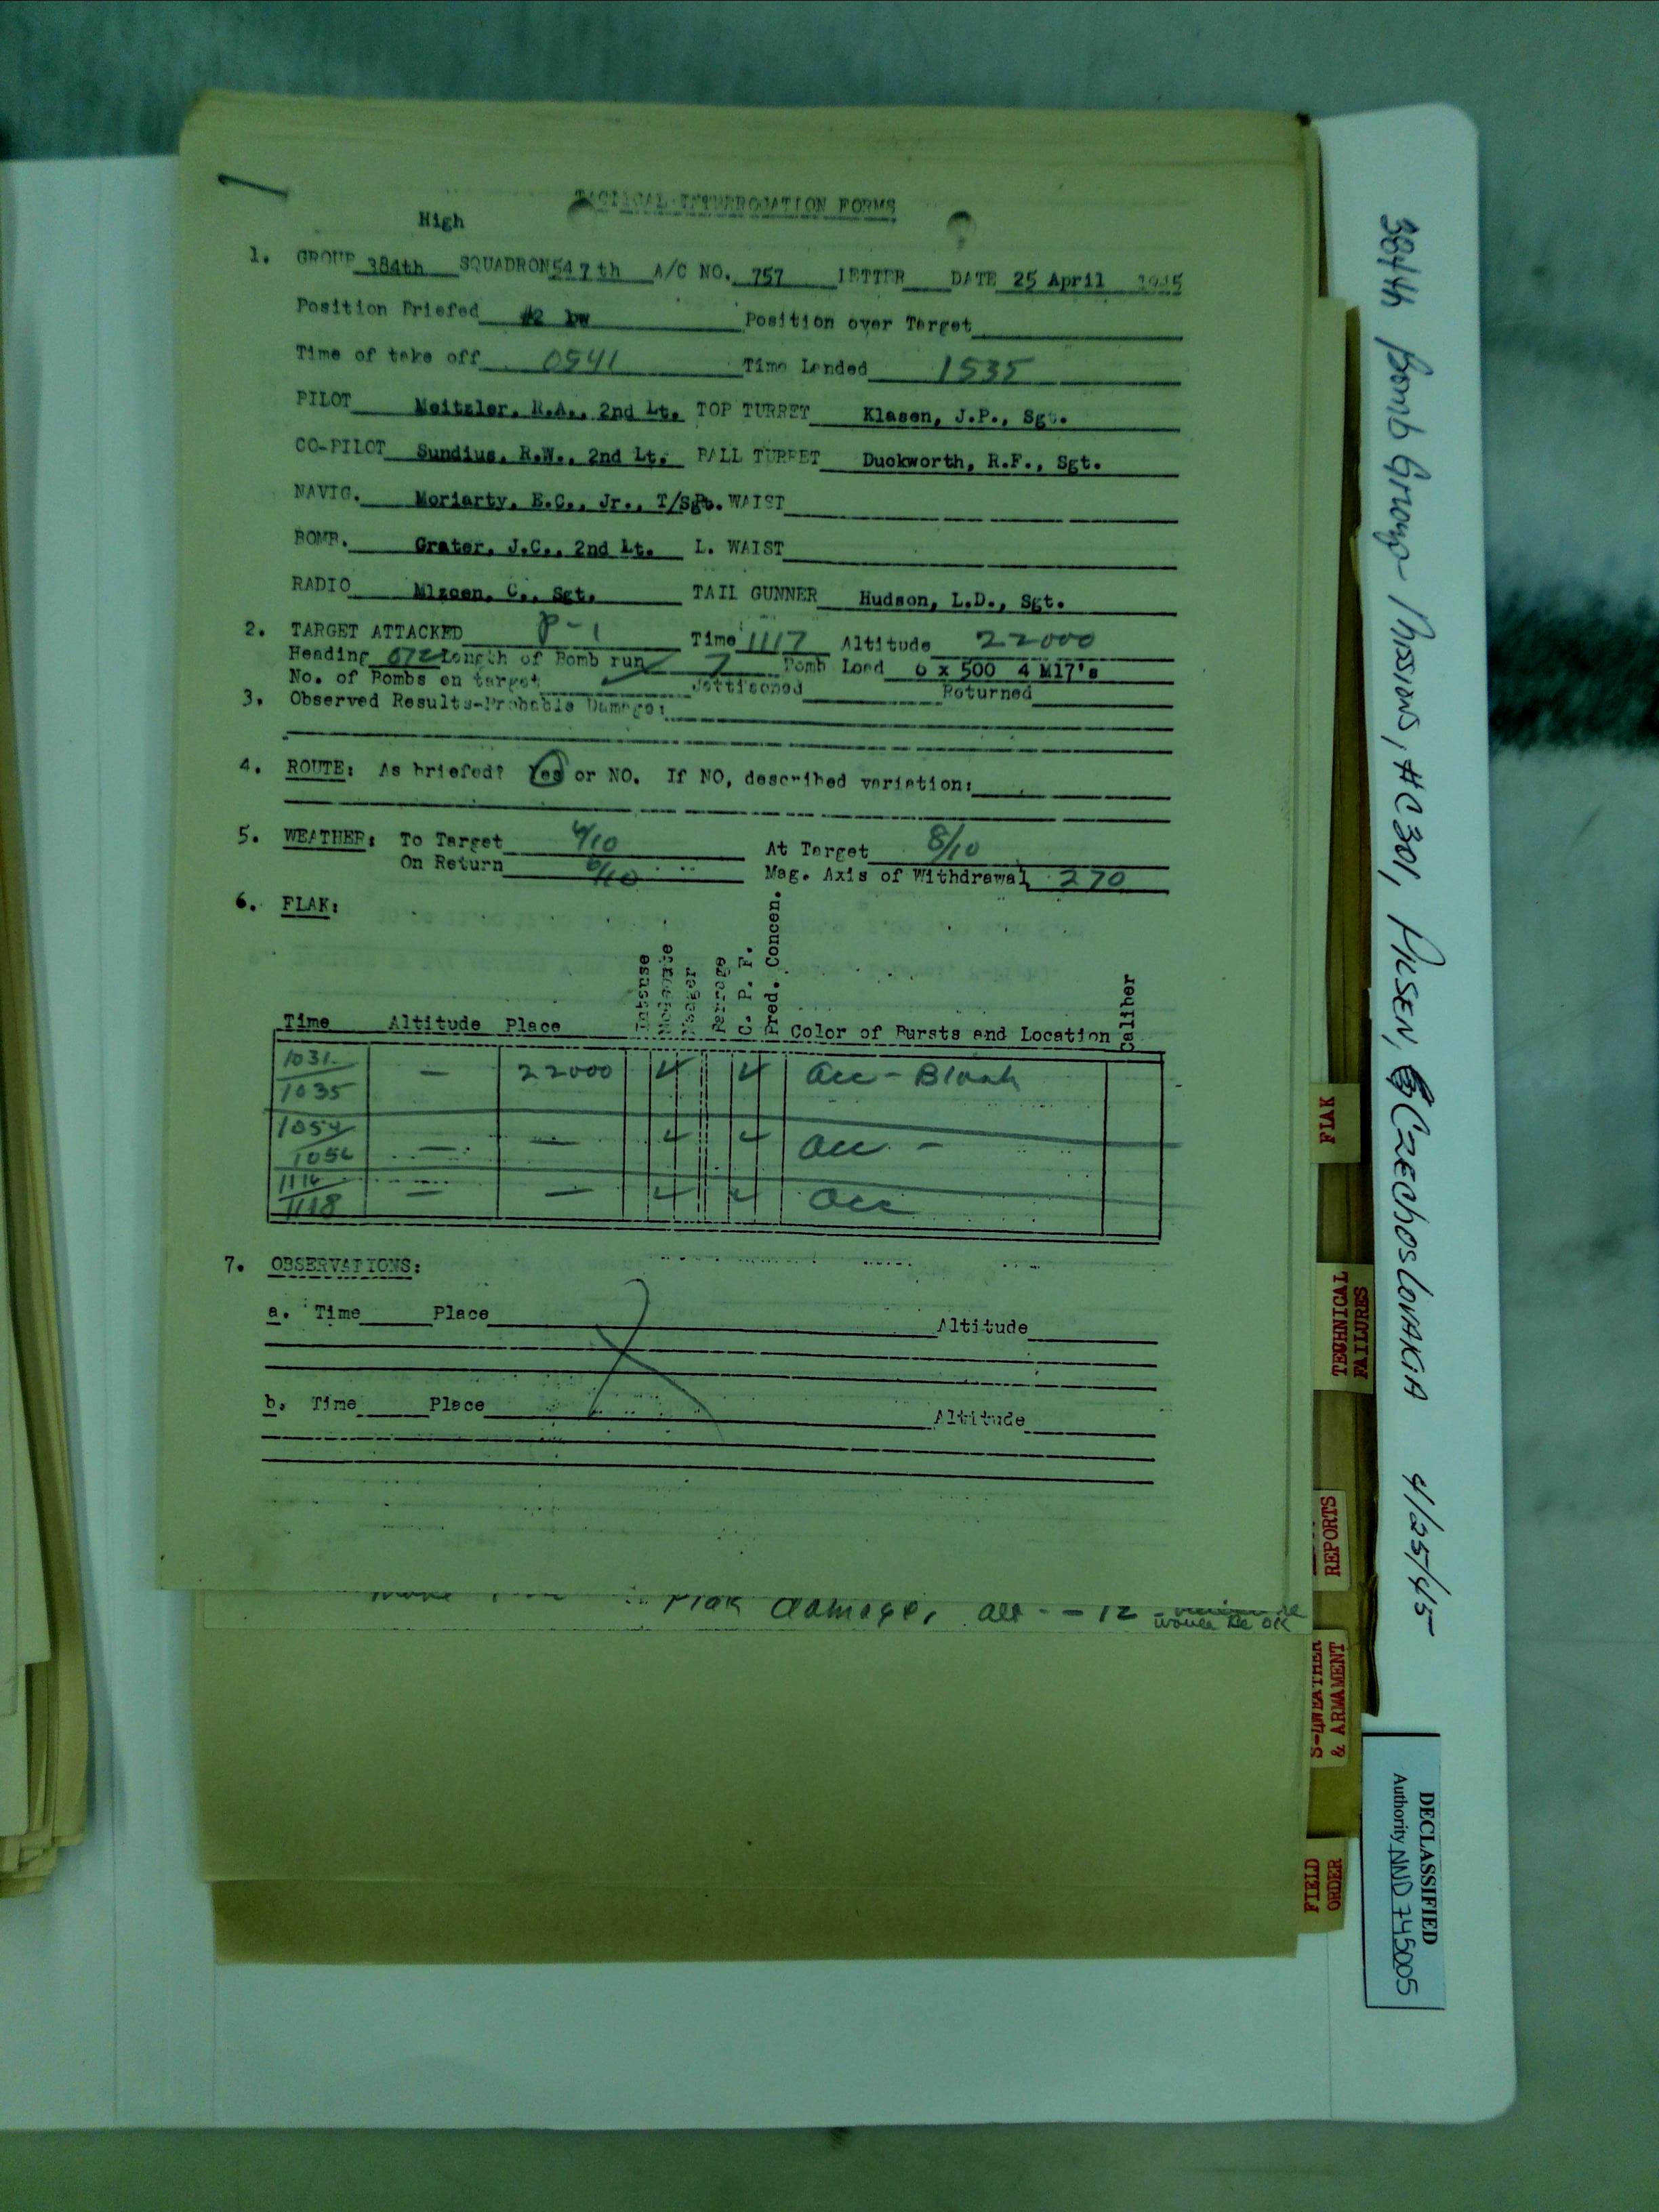 TACTICAL INTERROGATION FORMS
High
1. GROUP 384th SQUADRON 547th A/C NO. 757 LETTER DATE 25 April 1945
Position Briefed #2 bw Position over Target
Time of take off 0541 Time Landed 1535
PILOT Meitzler, R.A., 2nd Lt. TOP TURRET Klasen, J.P., Sgt.
CO-PILOT Sundius, R.W., 2nd Lt. BALL TURRET Duckworth, R.F., Sgt.
NAVIG. Moriarty, E.C., Jr., T/Sgt. WAIST
BOMB. Grater, J.C., 2nd Lt. L. WAIST
RADIO Mlzcen, C., Sgt. TAIL GUNNER Hudson, L.D., Sgt.
2. TARGET ATTACKED P-1 Time 1117 Altitude 22000
Heading 072 Length of Bomb run 7 Bomb Load 6 x 500 4 M17's
No. of Bombs on target Jettisoned Returned
3. Observed Results-Probable Damage:
4. ROUTE: As briefed? Yes or NO. If NO, described variation:
5. WEATHER: To Target 4/10 At Target 8/10
On Return 6/10 Mag. Axis of Withdrawal 270
6. FLAK:
Time Altitude Place Intense Moderate Meager Barrage C. P. F. Pred. Concen. Color of Bursts and Location Caliber
1031 / 1035 — 22000 Acc - Black
1054 / 1056 — — Acc -
1116 / 1118 — — Acc
7. OBSERVATIONS:
a. Time Place Altitude
b. Time Place Altitude
Flak damage, -12
would be OK
384th Bomb Group Missions, #C301, PILSEN, CZECHOSLOVAKIA 4/25/45
FLAK
TECHNICAL FAILURES
REPORTS
S-WEATHER & ARMAMENT
FIELD ORDER
DECLASSIFIED
Authority NND 745005